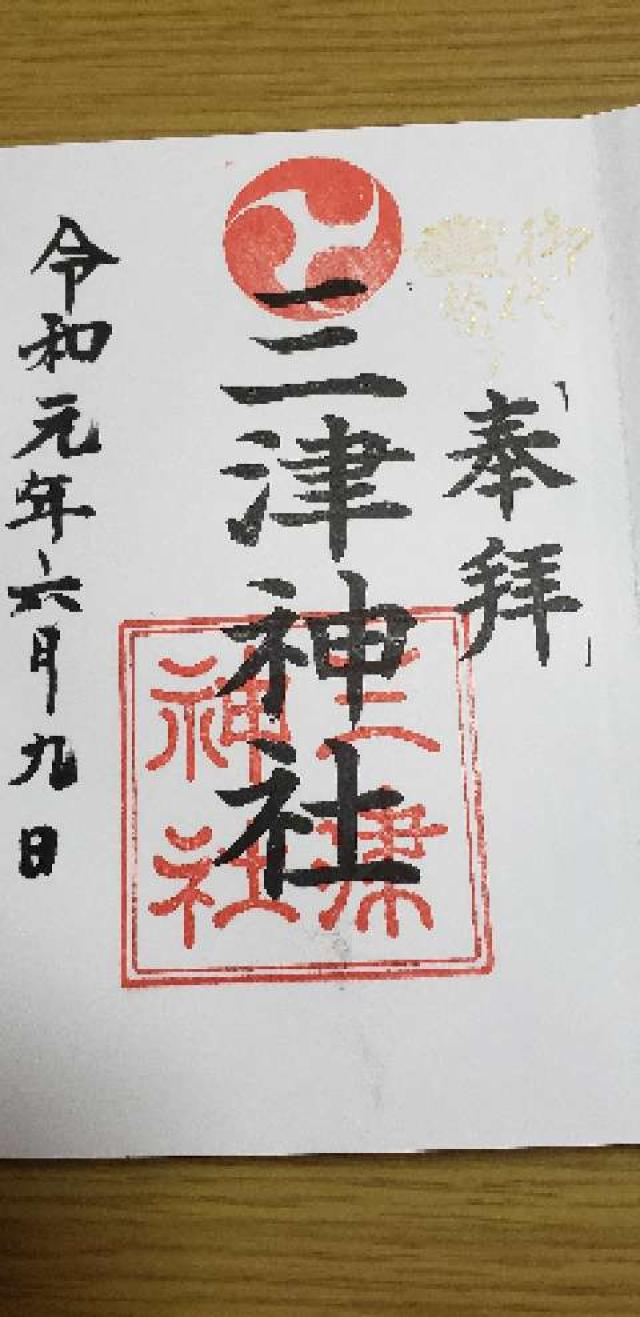 奉拝
三津神社
三津神社
令和元年六月九日